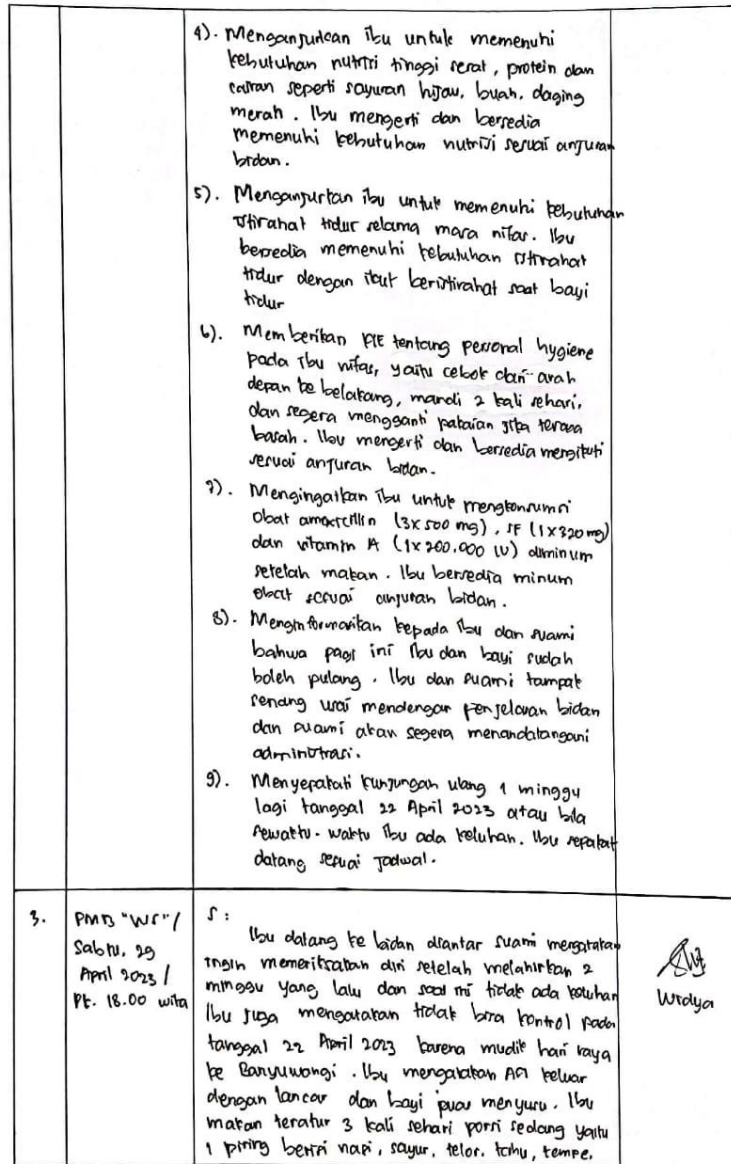 4). Menganjurkan ibu untuk memenuhi
kebutuhan nutrisi tinggi serat, protein dan
cairan seperti sayuran hijau, buah, daging
merah. Ibu mengerti dan bersedia
memenuhi kebutuhan nutrisi sesuai anjuran
bidan.
5). Menganjurkan ibu untuk memenuhi kebutuhan
istirahat tidur selama masa nifas. Ibu
bersedia memenuhi kebutuhan istirahat
tidur dengan ikut beristirahat saat bayi
tidur
6). Memberikan KIE tentang personal hygiene
pada ibu nifas, yaitu cebok dari arah
depan ke belakang, mandi 2 kali sehari,
dan segera mengganti pakaian jika terasa
basah. Ibu mengerti dan bersedia mengikuti
sesuai anjuran bidan.
7). Mengingatkan ibu untuk mengkonsumsi
obat amoxicillin (3x500 mg), SF (1x320 mg)
dan vitamin A (1x200.000 IU) diminum
setelah makan. Ibu bersedia minum
obat sesuai anjuran bidan.
8). Menginformasikan kepada ibu dan suami
bahwa pagi ini ibu dan bayi sudah
boleh pulang. Ibu dan suami tampak
senang usai mendengar penjelasan bidan
dan suami akan segera menandatangani
administrasi.
9). Menyepakati kunjungan ulang 1 minggu
lagi tanggal 22 April 2023 atau bila
sewaktu-waktu ibu ada keluhan. Ibu sepakat
datang sesuai jadwal.
3.
PMB "WS" /
Sabtu, 29
April 2023 /
Pk. 18.00 wita
S :
Ibu datang ke bidan diantar suami mengatakan
ingin memeriksakan diri setelah melahirkan 2
minggu yang lalu dan saat ini tidak ada keluhan
Ibu juga mengatakan tidak bisa kontrol pada
tanggal 22 April 2023 karena mudik hari raya
ke Banyuwangi. Ibu mengatakan ASI keluar
dengan lancar dan bayi puas menyusu. Ibu
makan teratur 3 kali sehari porsi sedang yaitu
1 piring berisi nasi, sayur, telor, tahu, tempe.
Widya